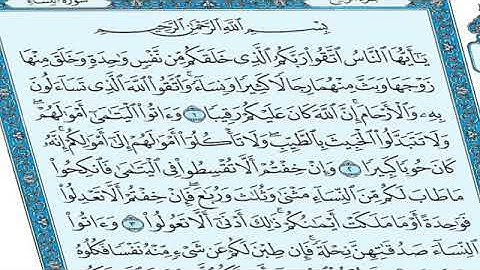 سورة النساء
بِسْمِ اللَّهِ الرَّحْمَٰنِ الرَّحِيمِ
يَٰٓأَيُّهَا ٱلنَّاسُ ٱتَّقُوا۟ رَبَّكُمُ ٱلَّذِى خَلَقَكُم مِّن نَّفْسٍ وَٰحِدَةٍ وَخَلَقَ مِنْهَا
زَوْجَهَا وَبَثَّ مِنْهُمَا رِجَالًا كَثِيرًا وَنِسَآءً ۚ وَٱتَّقُوا۟ ٱللَّهَ ٱلَّذِى تَسَآءَلُونَ
بِهِۦ وَٱلْأَرْحَامَ ۚ إِنَّ ٱللَّهَ كَانَ عَلَيْكُمْ رَقِيبًا ١ وَءَاتُوا۟ ٱلْيَتَٰمَىٰٓ أَمْوَٰلَهُمْ ۖ
وَلَا تَتَبَدَّلُوا۟ ٱلْخَبِيثَ بِٱلطَّيِّبِ ۖ وَلَا تَأْكُلُوٓا۟ أَمْوَٰلَهُمْ إِلَىٰٓ أَمْوَٰلِكُمْ ۚ إِنَّهُۥ
كَانَ حُوبًا كَبِيرًا ٢ وَإِنْ خِفْتُمْ أَلَّا تُقْسِطُوا۟ فِى ٱلْيَتَٰمَىٰ فَٱنكِحُوا۟
مَا طَابَ لَكُم مِّنَ ٱلنِّسَآءِ مَثْنَىٰ وَثُلَٰثَ وَرُبَٰعَ ۖ فَإِنْ خِفْتُمْ أَلَّا تَعْدِلُوا۟
فَوَٰحِدَةً أَوْ مَا مَلَكَتْ أَيْمَٰنُكُمْ ۚ ذَٰلِكَ أَدْنَىٰٓ أَلَّا تَعُولُوا۟ ٣ وَءَاتُوا۟
ٱلنِّسَآءَ صَدُقَٰتِهِنَّ نِحْلَةً ۚ فَإِن طِبْنَ لَكُمْ عَن شَىْءٍ مِّنْهُ نَفْسًا فَكُلُوهُ